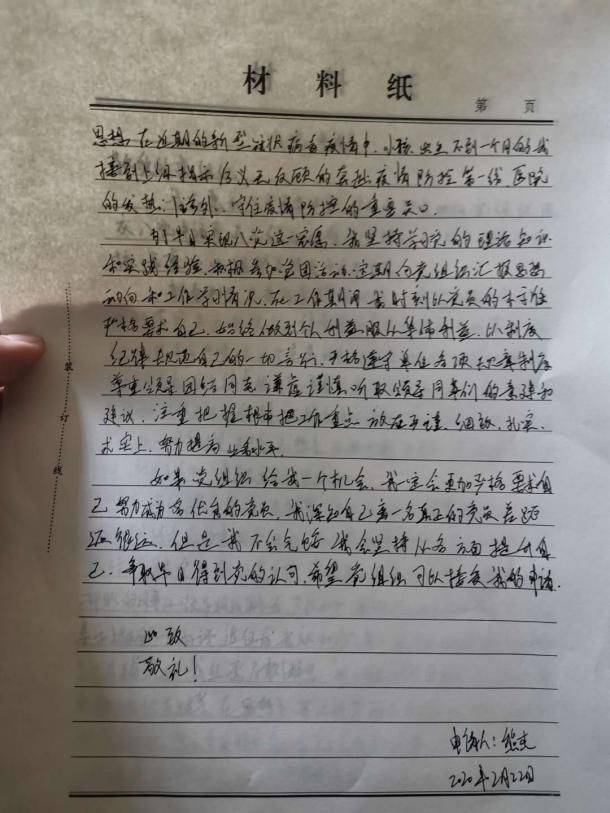 材 料 纸
第 页
思想,在近期的新型冠状病毒疫情中,小孩出生不到一个月的我
接到上级指示后义无反顾的奔赴疫情防控第一线医院
的发热门诊外,守住疫情防控的重要关口。
为早日实现入党这一宏愿,我坚持学习党的理论知识
和实践经验,积极参加党团活动,定期向党组织汇报思想
动向和工作学习情况。在工作期间我时刻以党员的本
严格要求自己,始终做到个人利益服从集体利益,以制度
纪律规范自己的一切言行,严格遵守单位各项规章制度
尊重领导团结同志谦虚谨慎,听取领导同事们的意见和
建议,注重把握根本把工作重点放在严谨、细致、扎实、
求实上,努力提高业务水平。
如果党组织给我一个机会,我一定会更加严格要求自
己努力成为名优秀的党员,我深知自己离一名真正的党员差距
还很远,但是我不会气馁我会坚持从各方面提升自
己,争取早日得到党的认可,希望党组织可以接受我的申请.
此致
敬礼!
申请人:熊杰
2020年2月22日
装
订
线